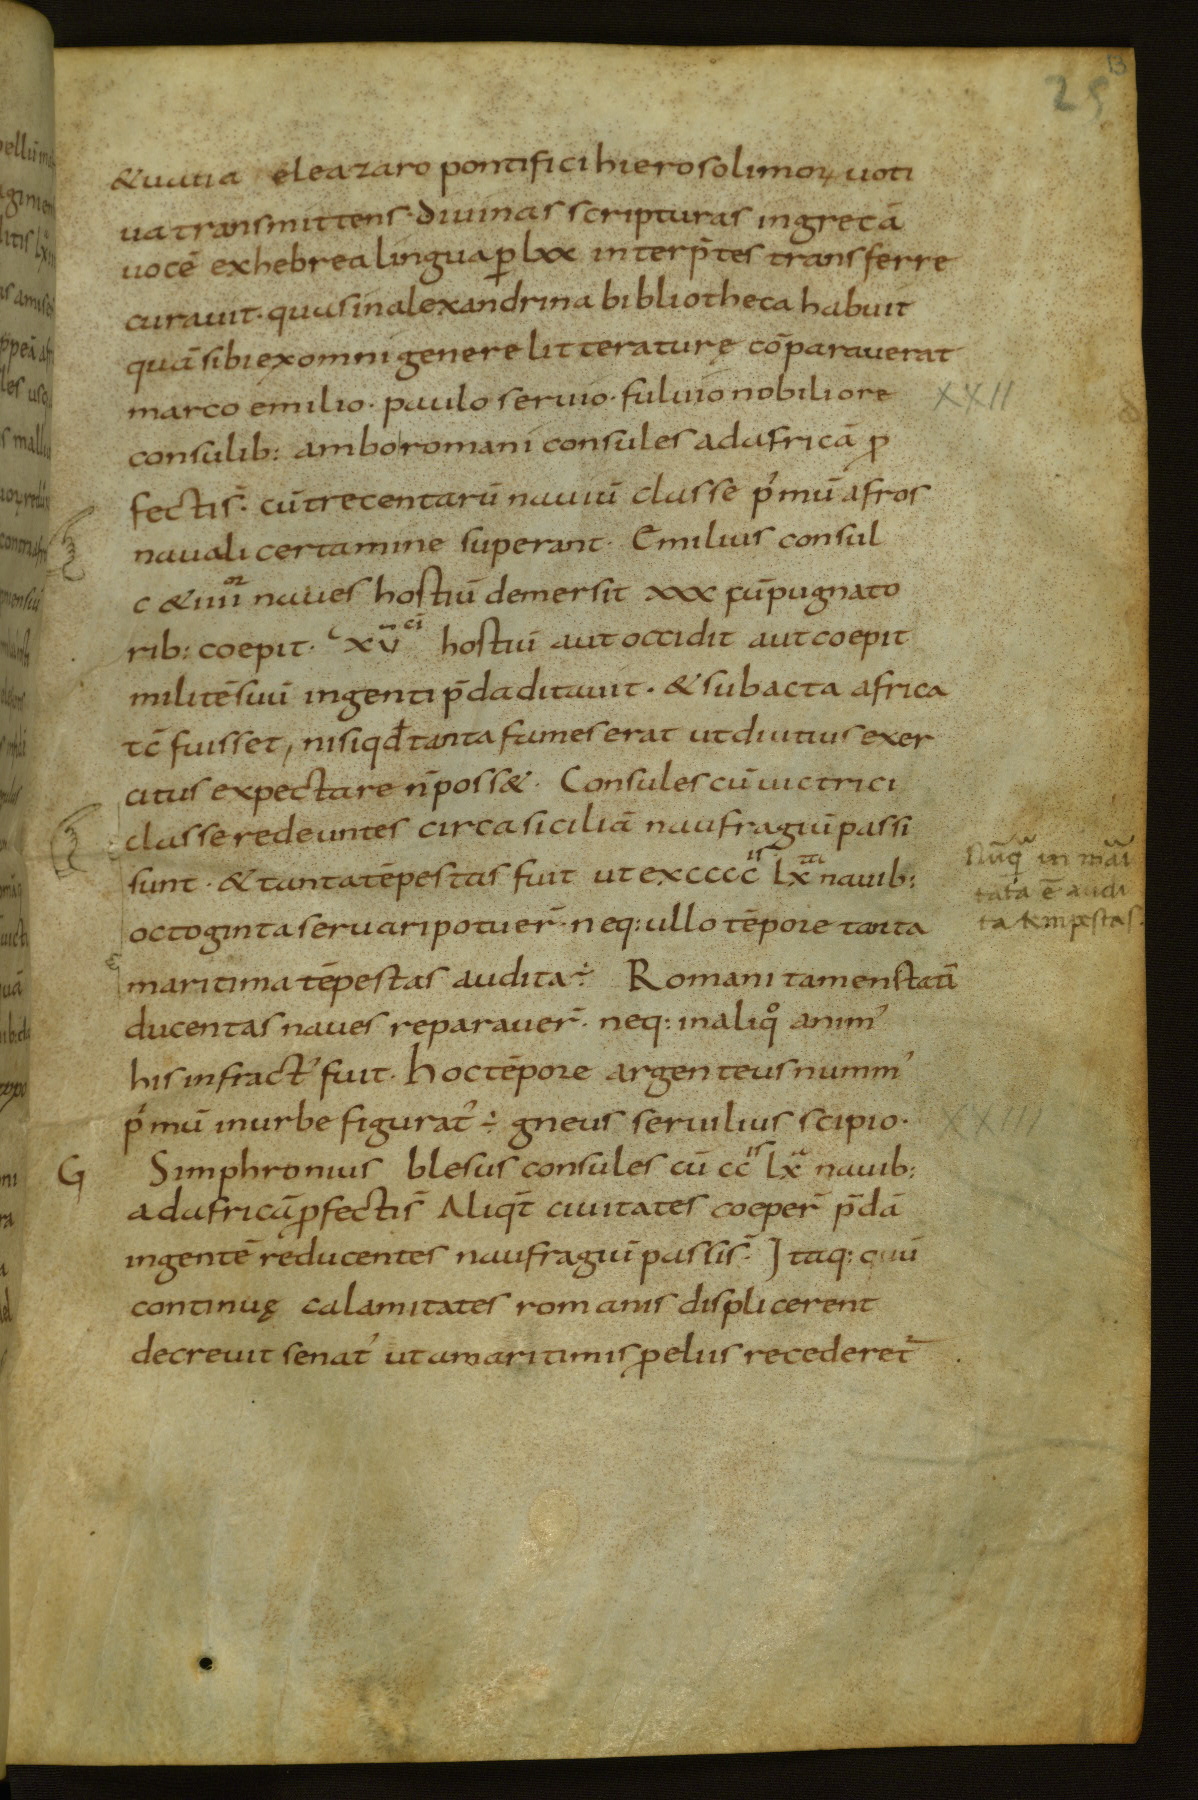 25
13
& uatia eleazaro pontifici hierosolimoꝝ uoti
ua transmittens· diuinas scripturas in grecā
uocē ex hebrea lingua ꝑ lxx interp̄tes transferre
curauit· quas in alexandrina bibliotheca habuit
quā sibi ex omni genere litteraturę cōparauerat
marco emilio· paulo seruio· fuluio nobiliore
XXII
consulib: ambo romani consules ad africā ꝓ
fectis̄· cū trecentarū nauiū classe p'mū afros
nauali certamine superant· Emilius consul
c & iiii^or naues hostiū demersit xxx cū pugnato
rib: coepit· xv̄^ci hostiū aut occidit aut coepit
militē suū ingenti p̄da ditauit· & subacta africa
tc̄ fuisset, nisi qđ tanta fames erat ut diutius exer
citus expectare n̄ poss&· Consules cū uictrici
classe redeuntes circa siciliā naufragiū passi
sunt· & tanta tēpestas fuit ut ex cccc^is lx^ta nauib:
octoginta seruari potuer̄· neq: ullo tēpore tanta
maritima tēpestas audita ÷ Romani tamen statī
Nūq^a in mai
tata ē audi
ta tempestas·
ducentas naues reparauer̄· neq: in aliq° anim'
his infract' fuit· hoc tēpore argenteus numm'
p'mū in urbe figurat' ÷ gneus seruilius scipio·
XXIII
G Simphronius blesus consules cū cc^is lx^ta nauib:
ad africā ꝓfectis̄ Aliq̄t ciuitates coeper̄ p̄dā
ingentē reducentes naufragiū passis̄· Itaq: cuū
continuę calamitates romanis displicerent
decreuit senat' ut a maritimis p̄eliis recederet̄ ·